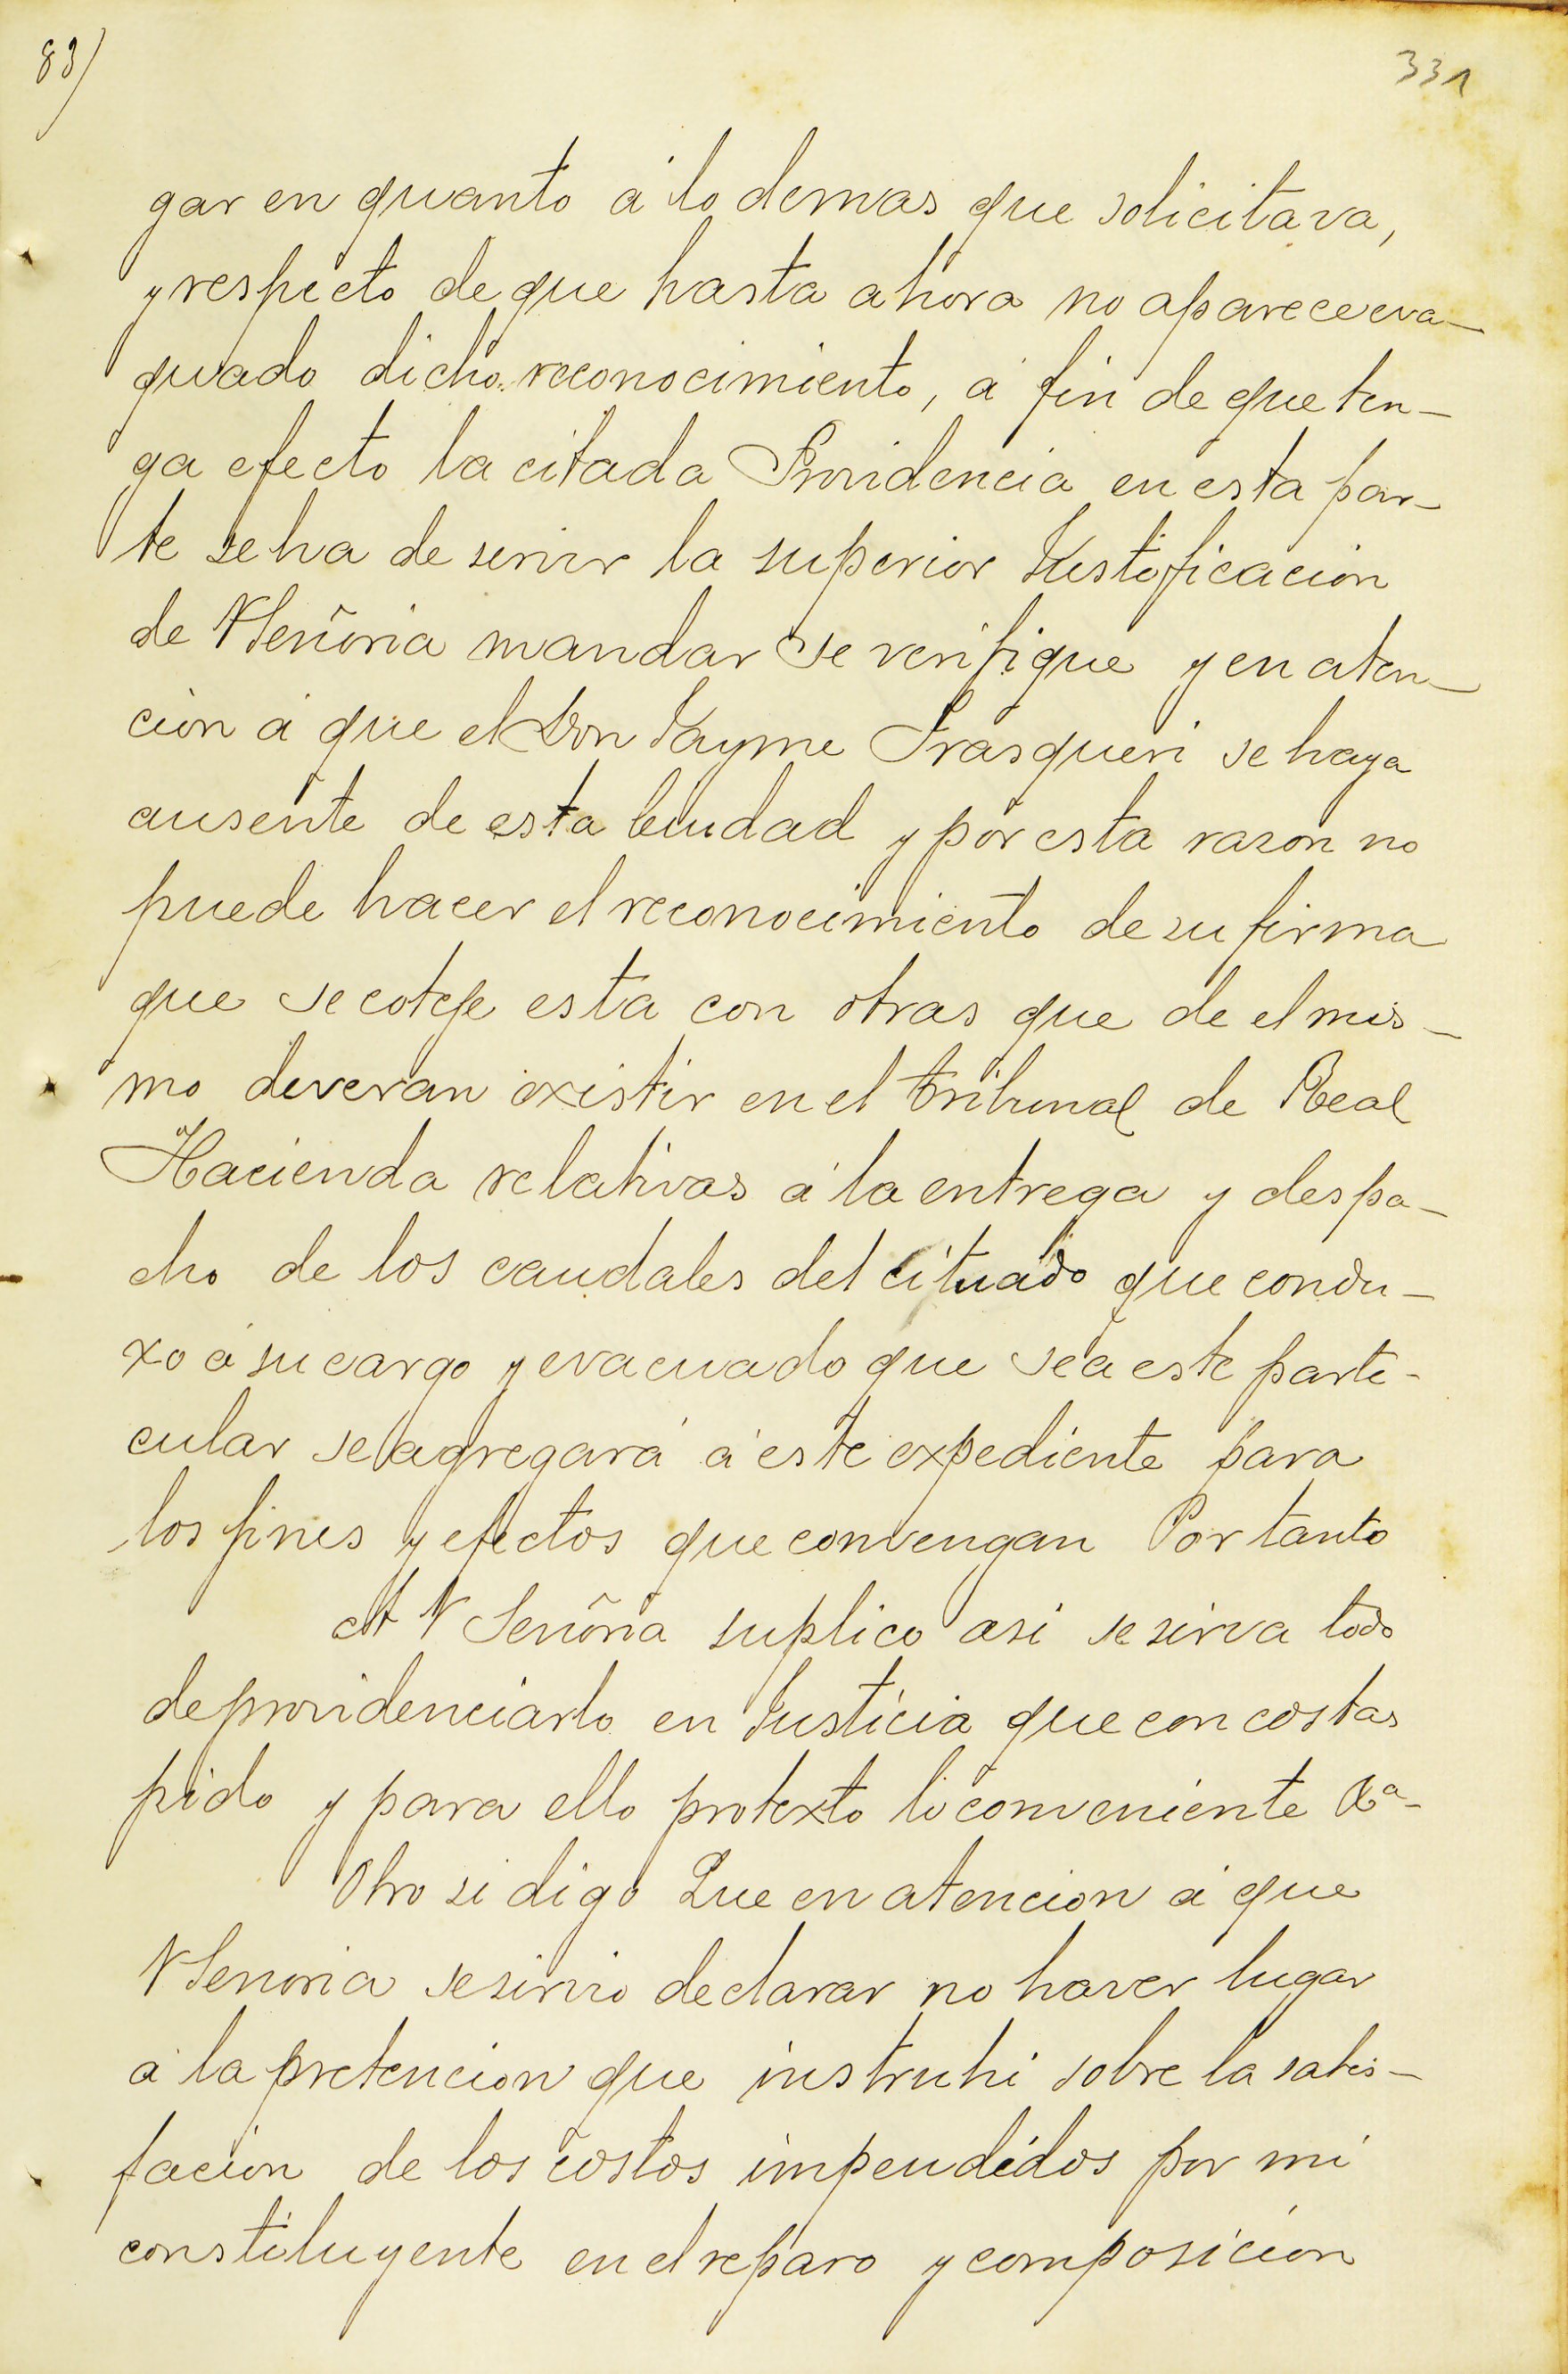 83)
331
gar en quanto á lo demas que solicitava,
y respecto de que hasta ahora no aparece eva-
quado dicho reconocimiento, á fin de que ten-
ga efecto la citada Providencia en esta par-
te se ha de servir la superior Justificacion
de VSeñoria mandar se verifique y en aten-
cion á que el Don Jayme Frasqueri se haya
ausente de esta Ciudad y por esta razon no
puede hacer el reconocimiento de su firma
que se coteje esta con otras que de el mis-
mo deveran existir en el tribunal de Real
Hacienda relativas á la entrega y despa-
cho de los caudales del cituado que condu-
xo á su cargo y evacuado que sea este parti-
cular se agregará á este expediente para
los fines y efectos que convengan Por tanto
A V Señoria suplico asi se sirva todo
deprovidenciarlo en Justicia que con costas
pido y para ello protexto lo conveniente &a-
Otro si digo Que en atencion á que
VSenoria se sirvio declarar no haver lugar
á la pretencion que instruhi sobre la satis-
facion de los costos impendidos por mi
constituyente en el reparo y composicion